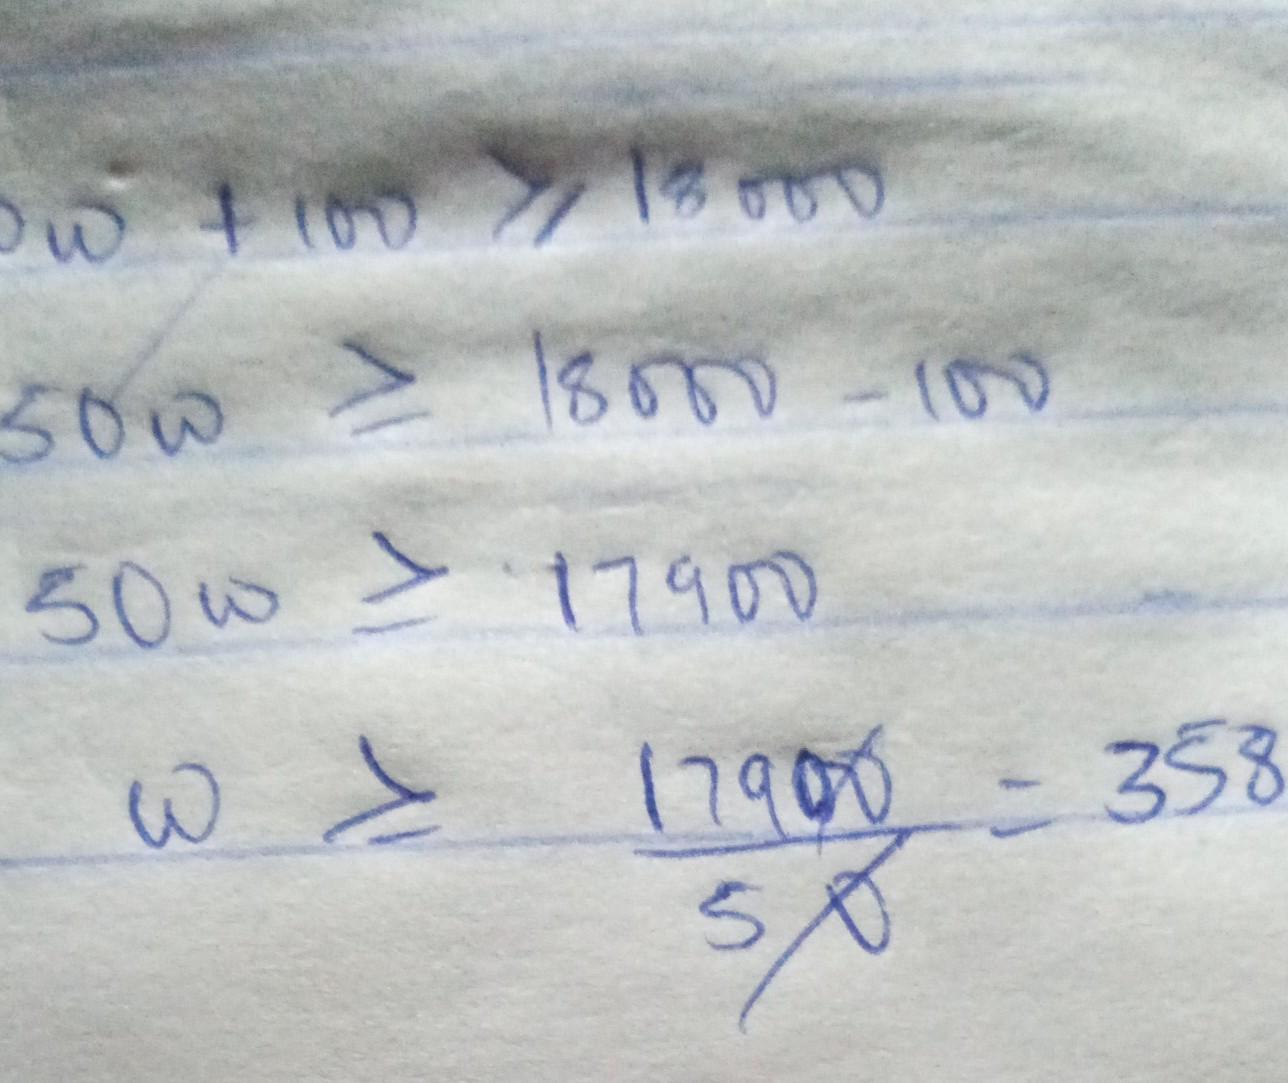 0w + 100 ⩾ 18000
50w ≥ 18000 - 100
50w ≥ 17900
w ≥ 17900/50 = 358